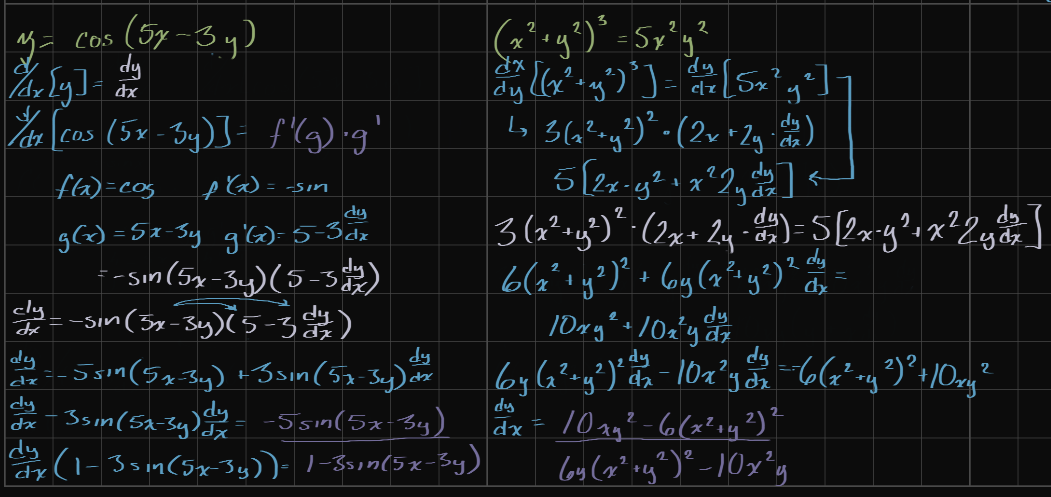 y = cos(5x-3y)
d/dx[y] = dy/dx
d/dx[cos(5x-3y)] = f'(g)·g'
f(x)=cos f'(x)=-sin
g(x)=5x-3y g'(x)=5-3 dy/dx
=-sin(5x-3y)(5-3 dy/dx)
dy/dx = -sin(5x-3y)(5-3 dy/dx)
dy/dx = -5sin(5x-3y)+3sin(5x-3y) dy/dx
dy/dx - 3sin(5x-3y) dy/dx = -5sin(5x-3y)
dy/dx (1-3sin(5x-3y)) = 1-3sin(5x-3y)
(x²+y²)³ = 5x²y²
dx/dy[(x²+y²)³] = dy/dx[5x²y²]
↳ 3(x²+y²)²·(2x+2y·dy/dx)
5[2x·y²+x²2y dy/dx]
3(x²+y²)²·(2x+2y·dy/dx)=5[2x·y²+x²2y dy/dx]
6(x²+y²)²+6y(x²+y²)² dy/dx =
10xy²+10x²y dy/dx
6y(x²+y²)² dy/dx - 10x²y dy/dx = -6(x²+y²)²+10xy²
dy/dx = 10xy²-6(x²+y²)²
6y(x²+y²)²-10x²y